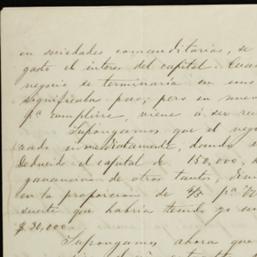 en sociedades comanditarias, se
gasto el interes del capital. Cuan
negocio se terminaria en uno
significaba poco; pero en nuev
viene á ser
Supongamos que el nego
inmediatamente, donde
deducido el capital de 150,000,
ganancia de otros tanto,
en la proporcion de
suerte que habria tenido yo un
$ 30,000.
Supongamos ahora que